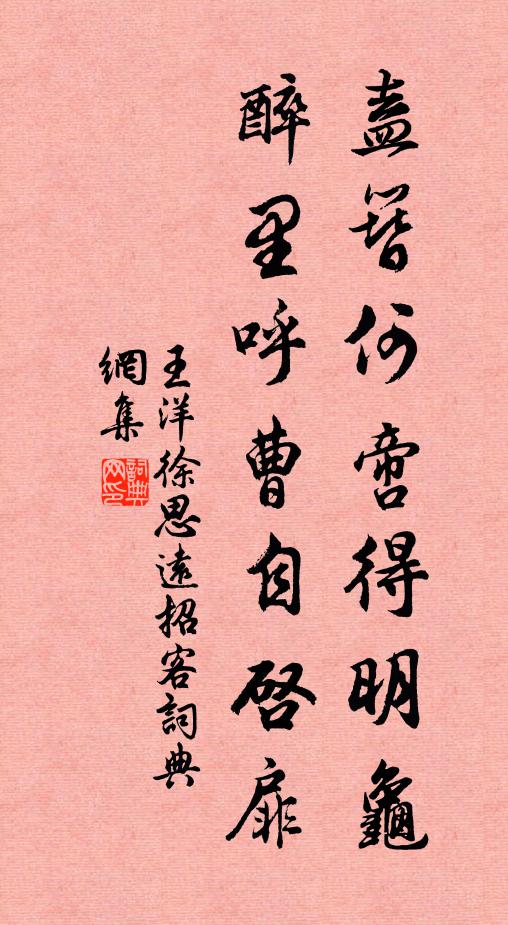 盍簪何啻得明龜
醉里呼曹自啓扉
王洋徐思遠招客詞典
網集
詞典网印